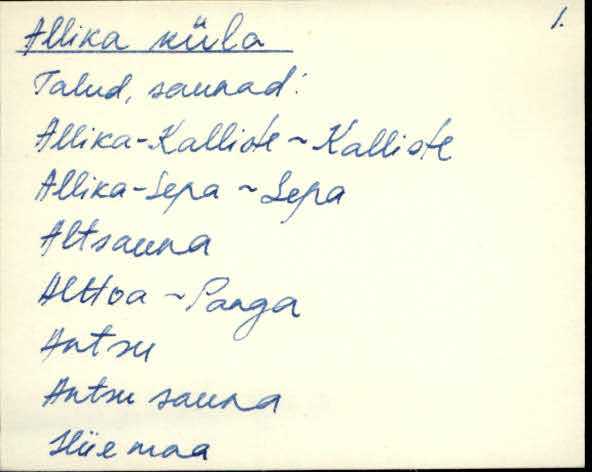 1.
Allika küla
Talud, saunad:
Allika-Kalliste ~ Kalliste
Allika-Sepa ~ Sepa
Altsauna
Alttoa ~ Panga
Antsu
Antsu sauna
Hiiemaa